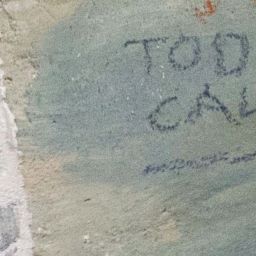 TOD
CAL